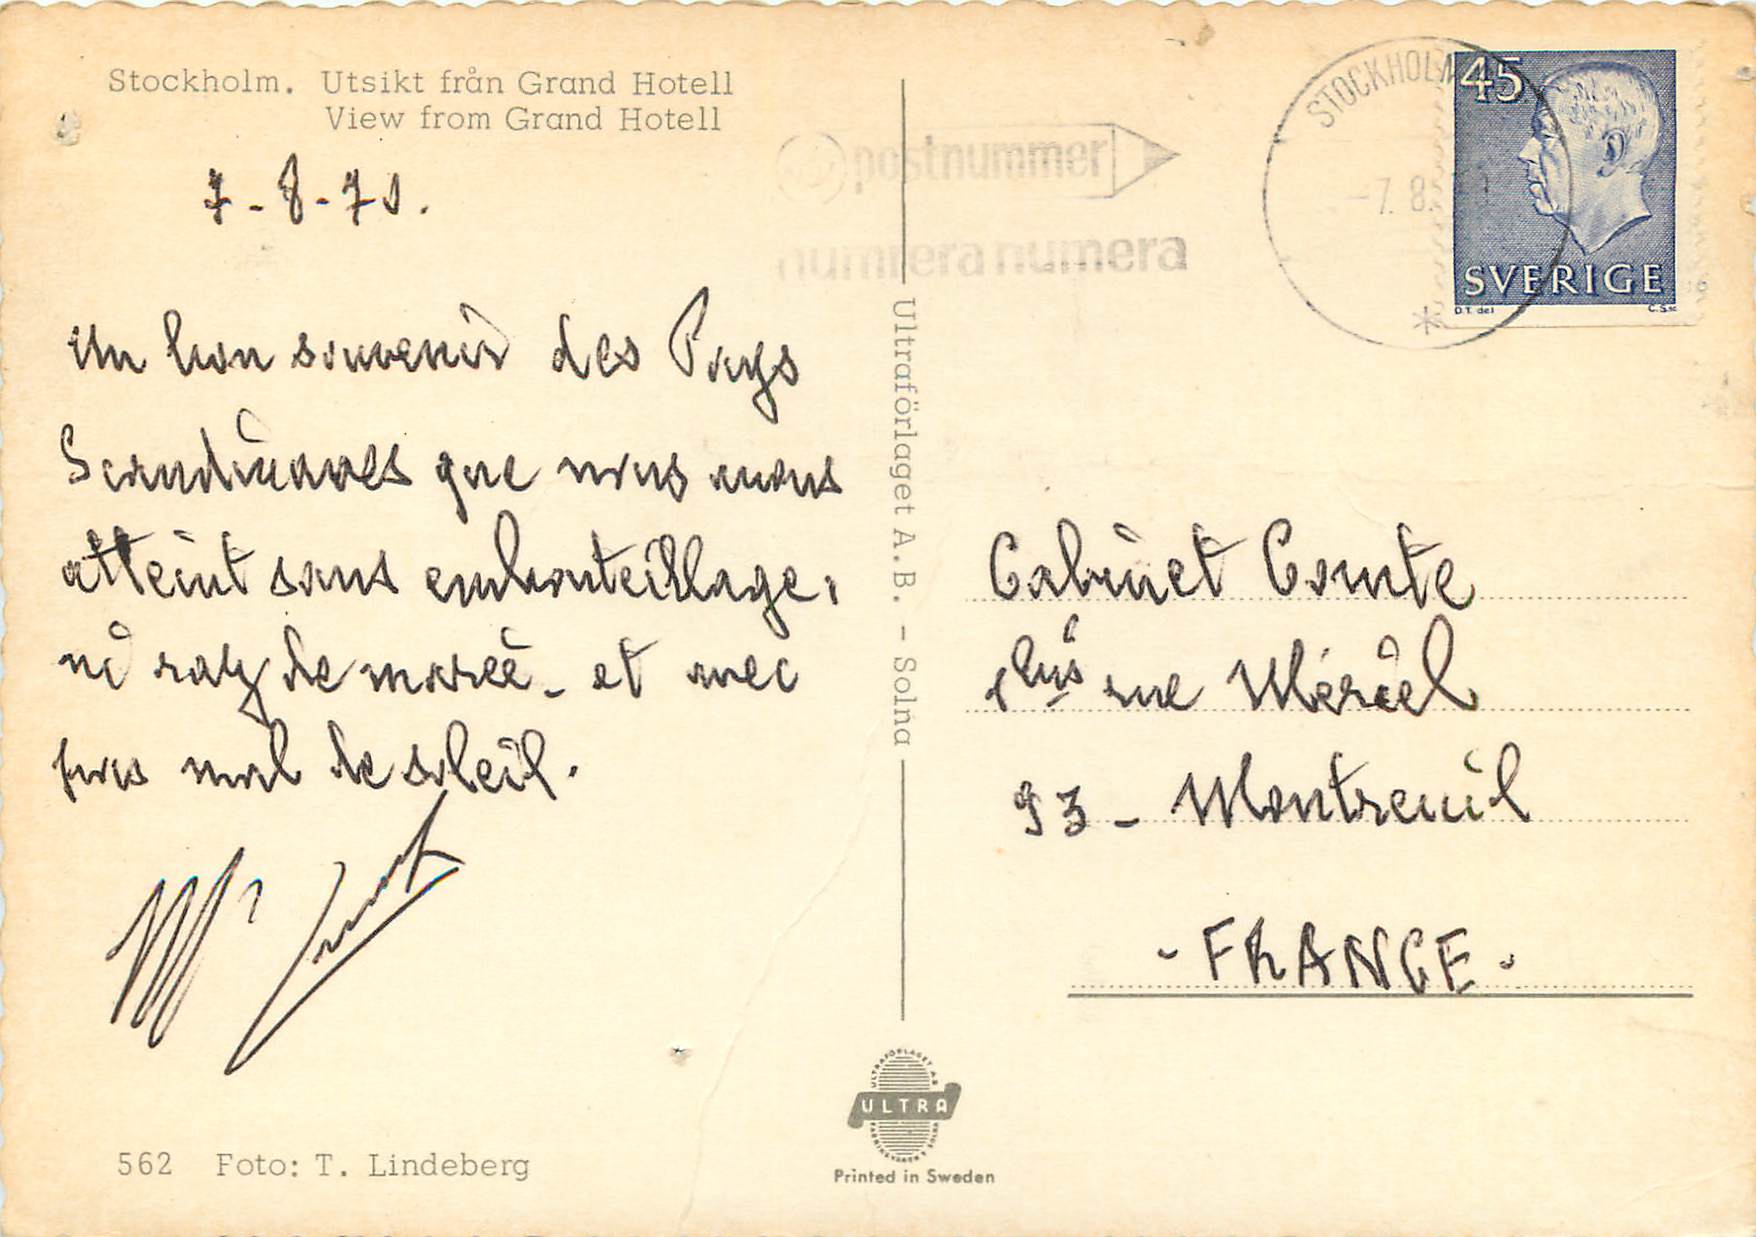 Stockholm. Utsikt från Grand Hotell
View from Grand Hotell
7-8-70.
Un bon souvenir des Pays
Scandinaves que nous avons
atteint sans embouteillage,
ni raz de marée - et avec
pas mal de soleil.
562 Foto: T. Lindeberg
Ultraförlaget A.B. - Solna
ULTRAFÖRLAGET AB
ULTRA
Printed in Sweden
postnummer
numrera numera
STOCKHOLM
-7.8.
45
SVERIGE
D.T. del
C.S. sc
Cabinet Comte
1 bis rue Mériel
93 - Montreuil
- FRANCE -